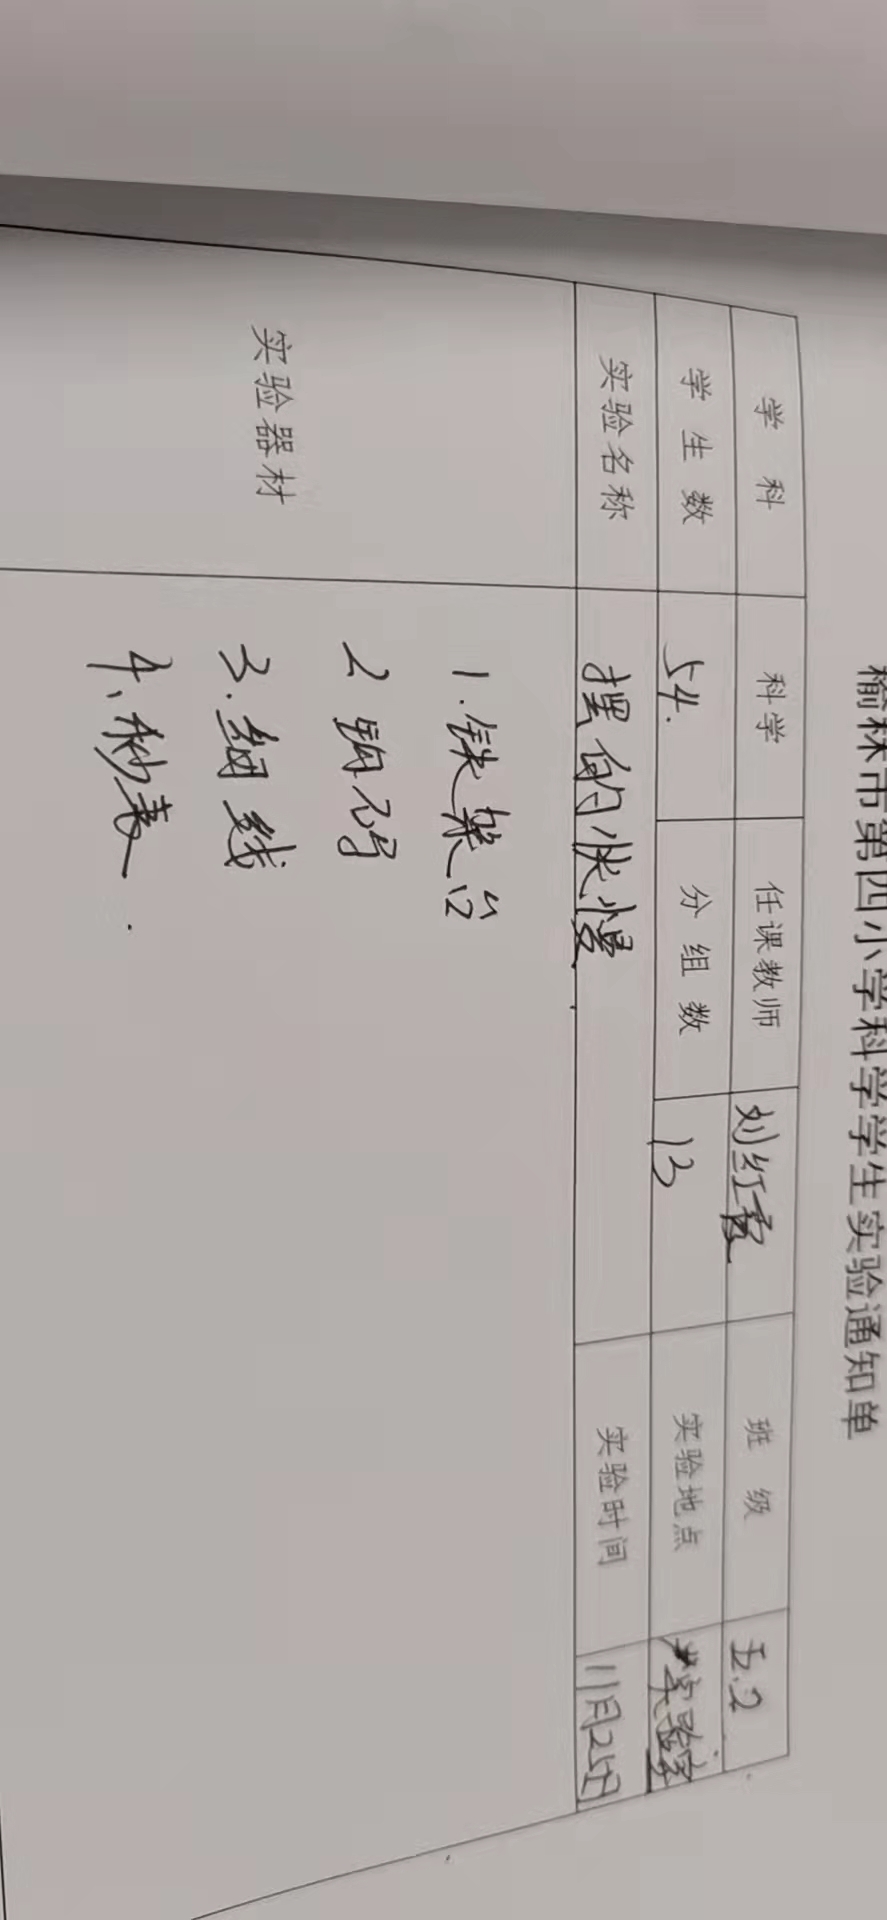 榆林市第四小学科学学生实验通知单
学 科 科学 任课教师 刘红霞 班 级 五.2
学 生 数 54. 分 组 数 13 实验地点 实验室
实验名称 摆的快慢. 实验时间 11月25日
实验器材
1.铁架台
2 钩码
3.细线
4、秒表.